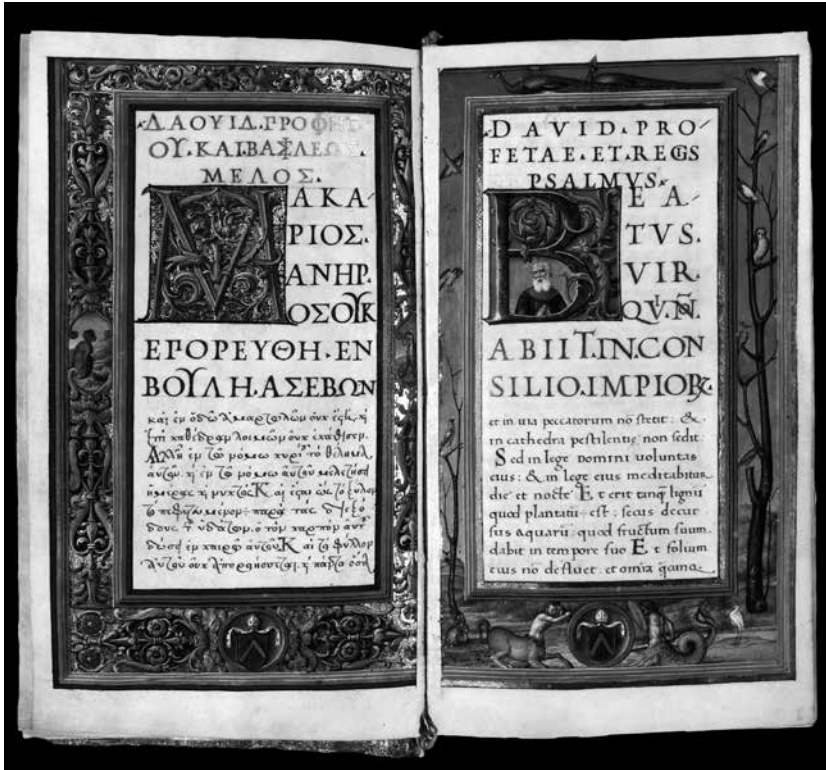 ΔΑΟΥΙΔ.ΠΡΟΦΗΤ
ΟΥ.ΚΑΙ ΒΑΣΙΛΕΩΣ.
ΜΕΛΟΣ.
ΜΑΚΑ
ΡΙΟΣ.
ΑΝΗΡ.
ΟΣΟΥΚ
ΕΠΟΡΕΥΘΗ.ΕΝ
ΒΟΥΛΗ.ΑΣΕΒΩΝ
καὶ ἐν ὁδῷ ἁμαρτωλῶν οὐκ ἔστη.
καθέδρᾳ λοιμῶν οὐκ ἐκάθισεν.
Ἀλλ' ἐν τῷ νόμῳ κυρίου τὸ θέλημα
αὐτοῦ. ἐν τῷ νόμῳ αὐτοῦ μελετήσει
ἡμέρας νυκτὸς Καὶ ἔσται ὡς τὸ ξύλον
τὸ πεφυτευμένον παρὰ τὰς διεξό
δους τ ὑδάτων. ὃ τὸν καρπὸν αὐτ
δώσει ἐν καιρῷ αὐτοῦ Καὶ τὸ φύλλον
αὐτοῦ οὐκ πάντα ὅσα
DAVID.PRO
FETAE.ET.REGIS
PSALMVS.
BEA
TVS.
VIR.
QVI.Ñ
ABIIT.IN.CON
SILIO.IMPIOꝜ
et in uia peccatorum nō stetit: &
in cathedra pestilentię non sedit.
Sed in lege Domini uoluntas
eius: & in lege eius meditabitur
die et nocte Et erit tanq̄ lignū
quod plantatū est: secus decur
sus aquarū: quod fructum suum
dabit in tempore suo Et folium
eius nō defluet: et omīa